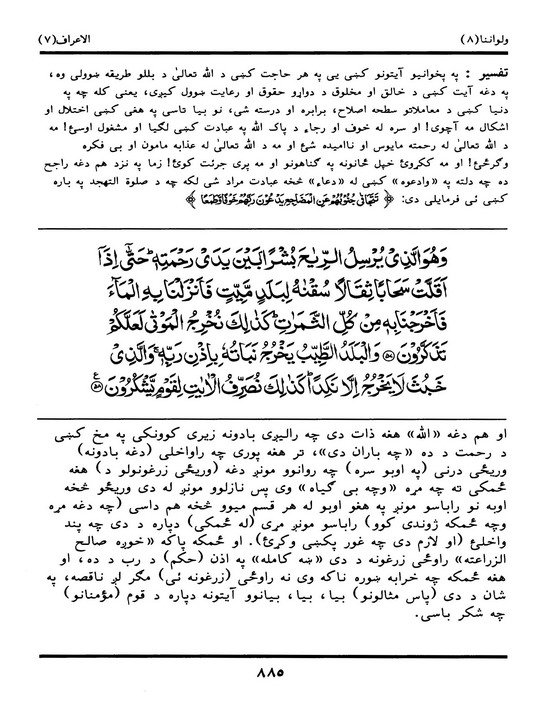 ولواننا(٨) الاعراف(٧)
تفسیر : په پخوانیو آیتونو کښی یی په هر حاجت کښی د الله تعالیٰ د بللو طریقه ښوولی وه،
په دغه آیت کښی د خالق او مخلوق د دواړو حقوق او رعایت ښوول کیږی، یعنی کله چه په
دنیا کښی د معاملاتو سطحه اصلاح، برابره او درسته شی، نو بیا تاسی په هغی کښی اختلال او
اشکال مه آچوی! او سره له خوف او رجاء د پاک الله په عبادت کښی لګیا او مشغول اوسئ! مه
د الله تعالیٰ له رحمته مایوس او ناامیده شئ او مه د الله تعالیٰ له عذابه مامون او بی فکره
وګرځئ! او مه ککړوئ خپل ځانونه په ګناهونو او مه پری جرئت کوئ! زما په نزد هم دغه راجح
ده چه دلته په «وادعوه» کښی له «دعاء» څخه عبادت مراد شی لکه چه د صلوة التهجد په باره
کښی ئی فرمایلی دی: ﴿ تَتَجَافٰى جُنُوْبُهُمْ عَنِ الْمَضَاجِعِ يَدْعُوْنَ رَبَّهُمْ خَوْفًا وَّطَمَعًا ﴾
وَهُوَالَّذِیْ یُرْسِلُ الرِّیٰحَ بُشْرًۢا بَیْنَ یَدَیْ رَحْمَتِهٖ حَتّٰۤی اِذَاۤ
اَقَلَّتْ سَحَابًا ثِقَالًا سُقْنٰهُ لِبَلَدٍ مَّیِّتٍ فَاَنْزَلْنَا بِهِ الْمَآءَ
فَاَخْرَجْنَا بِهٖ مِنْ كُلِّ الثَّمَرٰتِ كَذٰلِكَ نُخْرِجُ الْمَوْتٰی لَعَلَّكُمْ
تَذَكَّرُوْنَ ۝۵۷ وَالْبَلَدُ الطَّیِّبُ یَخْرُجُ نَبَاتُهٗ بِاِذْنِ رَبِّهٖ وَالَّذِیْ
خَبُثَ لَا یَخْرُجُ اِلَّا نَكِدًا كَذٰلِكَ نُصَرِّفُ الْاٰیٰتِ لِقَوْمٍ یَّشْكُرُوْنَ ۝۵۸
او هم دغه «الله» هغه ذات دی چه رالیږی بادونه زیری کوونکی په مخ کښی
د رحمت د ده «چه باران دی»، تر هغه پوری چه راواخلی (دغه بادونه)
وریځی درنی (په اوبو سره) چه روانوو مونږ دغه (وریځی زرغونولو د) هغه
ځمکی ته چه مړه «وچه بی ګیاه» وی پس نازلوو مونږ له دی وریځو څخه
اوبه نو راباسو مونږ په هغو اوبو له هر قسم میوو څخه هم داسی (چه دغه مړه
وچه ځمکه ژوندی کوو) راباسو مونږ مړی (له ځمکی) دپاره د دی چه پند
واخلئ (او لازم دی چه غور پکښی وکړئ). او ځمکه پاکه «خوږه صالح
الزراعته» راوځی زرغونه د دی «ښه کامله» په اذن (حکم) د رب د ده، او
هغه ځمکه چه خرابه ښوره ناکه وی نه راوځی (زرغونه ئی) مګر لږ ناقصه، په
شان د دی (پاس مثالونو) بیا، بیا، بیانوو آیتونه دپاره د قوم (مؤمنانو)
چه شکر باسی.
٨٨٥